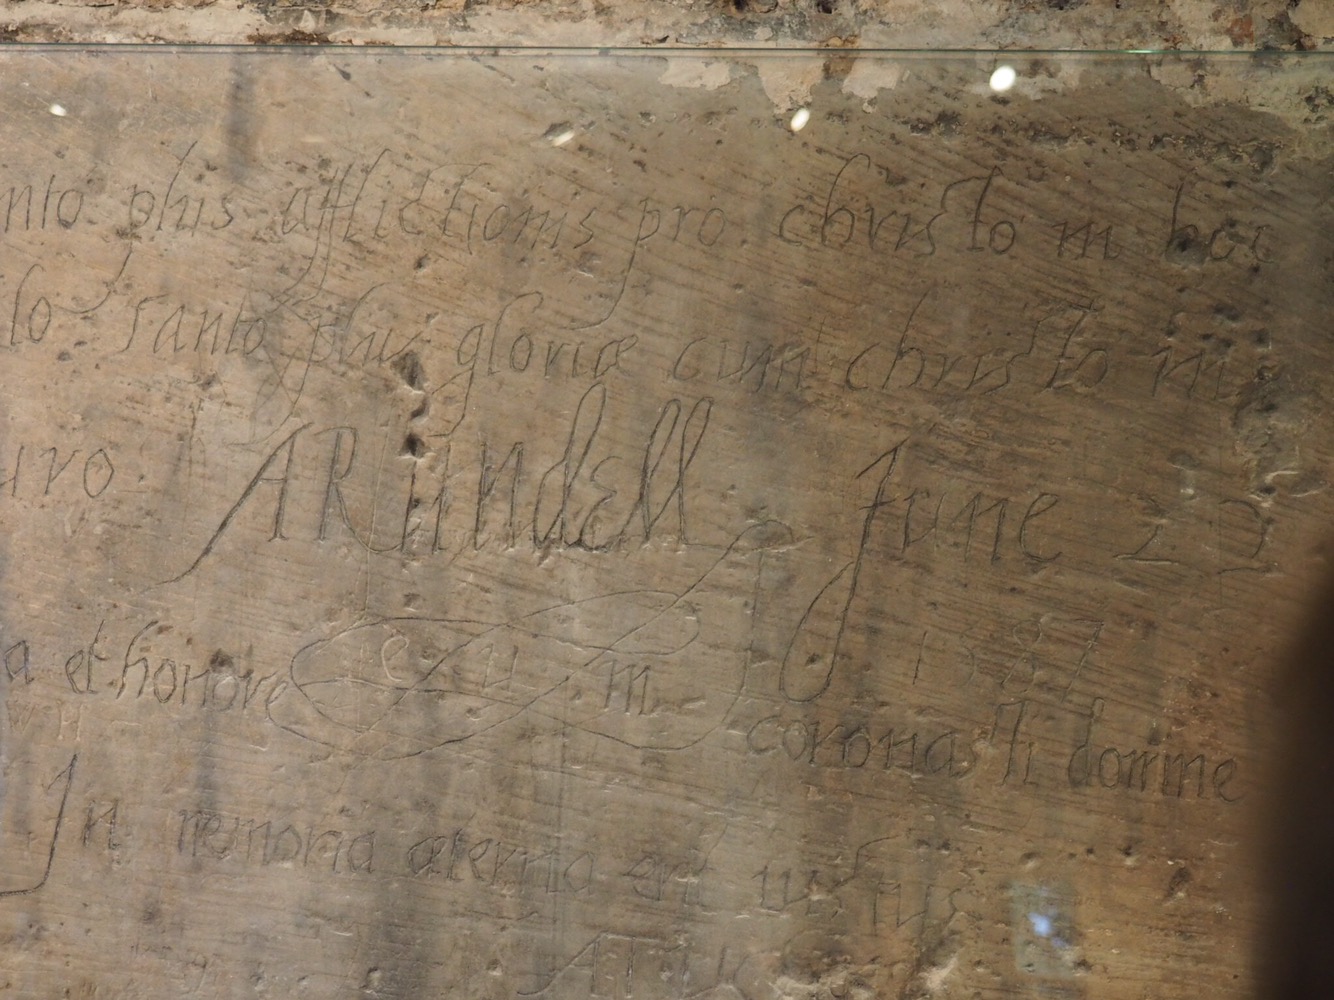 nto phis afflictionis pro christo in hoc
lo tanto plus gloriæ cum christo in
uro. ARUndell June 22
1587
a et honore eum coronasti domine
WH
In memoria æterna erit iustus